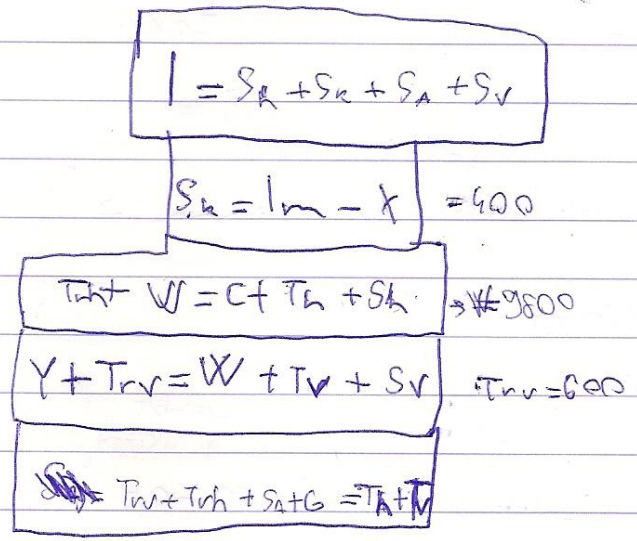 I = Sh + Sk + SA + SV
Sk = Im - X = 400
Trh + W = C + Th + Sh → W=9800
Y + Trv = W + Tv + Sv Trv = 600
= Trv + Trh + SA + G = Th + Tv